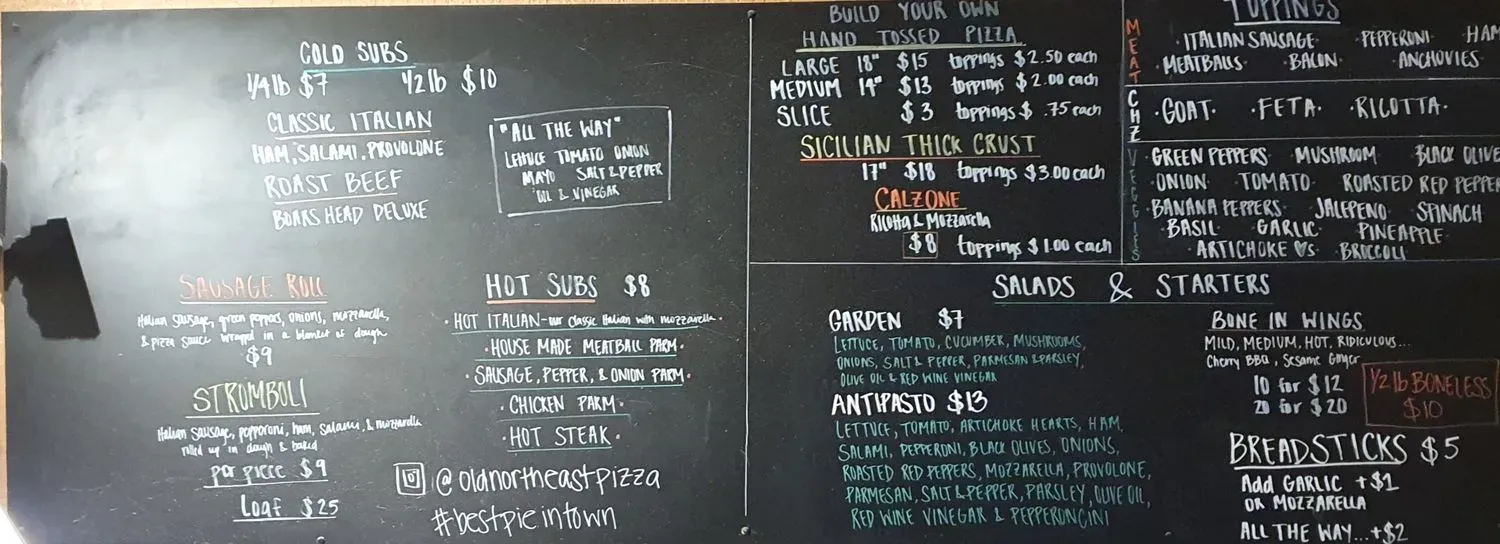 COLD SUBS
1/4 lb $7 1/2 lb $10
CLASSIC ITALIAN
HAM, SALAMI, PROVOLONE
ROAST BEEF
BOARS HEAD DELUXE
"ALL THE WAY"
LETTUCE TOMATO ONION
MAYO SALT & PEPPER
OIL & VINEGAR
SAUSAGE ROLL
Italian Sausage, green peppers, onions, mozzarella,
& pizza sauce wrapped in a blanket of dough
$9
STROMBOLI
Italian Sausage, pepperoni, ham, salami, & mozzarella
rolled up in dough & baked
per piece $9
Loaf $25
HOT SUBS $8
· HOT ITALIAN - our classic Italian with mozzarella ·
· HOUSE MADE MEATBALL PARM ·
· SAUSAGE, PEPPER, & ONION PARM ·
· CHICKEN PARM ·
· HOT STEAK ·
@oldnortheastpizza
#bestpieintown
BUILD YOUR OWN
HAND TOSSED PIZZA
LARGE 18" $15 toppings $2.50 each
MEDIUM 14" $13 toppings $2.00 each
SLICE $3 toppings $.75 each
SICILIAN THICK CRUST
17" $18 toppings $3.00 each
CALZONE
Ricotta & Mozzarella
$8 toppings $1.00 each
TOPPINGS
MEAT
· ITALIAN SAUSAGE · PEPPERONI · HAM
· MEATBALLS · BACON · ANCHOVIES ·
CHZ
· GOAT · · FETA · · RICOTTA ·
VEGGIES
· GREEN PEPPERS · MUSHROOM · BLACK OLIVE
· ONION · TOMATO · ROASTED RED PEPPE
· BANANA PEPPERS · JALEPENO · SPINACH
· BASIL · GARLIC · PINEAPPLE ·
· ARTICHOKE ♥s · BROCCOLI
SALADS & STARTERS
GARDEN $7
LETTUCE, TOMATO, CUCUMBER, MUSHROOMS,
ONIONS, SALT & PEPPER, PARMESAN & PARSLEY,
OLIVE OIL & RED WINE VINEGAR
ANTIPASTO $13
LETTUCE, TOMATO, ARTICHOKE HEARTS, HAM,
SALAMI, PEPPERONI, BLACK OLIVES, ONIONS,
ROASTED RED PEPPERS, MOZZARELLA, PROVOLONE,
PARMESAN, SALT & PEPPER, PARSLEY, OLIVE OIL,
RED WINE VINEGAR & PEPPERONCINI
BONE IN WINGS
MILD, MEDIUM, HOT, RIDICULOUS...
Cherry BBQ, Sesame Ginger
10 for $12
20 for $20
1/2 lb BONELESS
$10
BREADSTICKS $5
Add GARLIC +$1
OR MOZZARELLA
ALL THE WAY...+$2